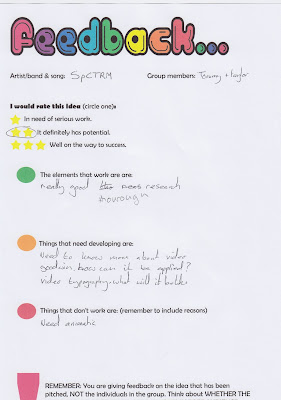 feedback...
Artist/band & song: SpCTRM Group members: Tommy + Taylor
I would rate this idea (circle one):
In need of serious work.
It definitely has potential.
Well on the way to success.
The elements that work are are:
really good research
thorough
Things that need developing are:
Need to know more about video
goodwin, how can it be applied?
video typography - what will it be like
Things that don't work are: (remember to include reasons)
Need animatic
REMEMBER: You are giving feedback on the idea that has been
pitched, NOT the individuals in the group. Think about WHETHER THE